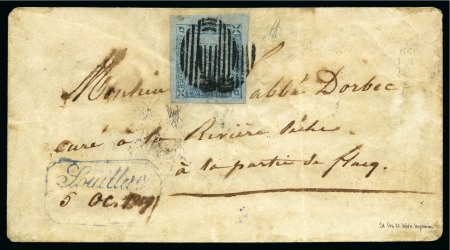 Monsieur l'abbé Dorbec
curé à la Rivière Sèche
à la partie de flacq.
Souillac
5 OC